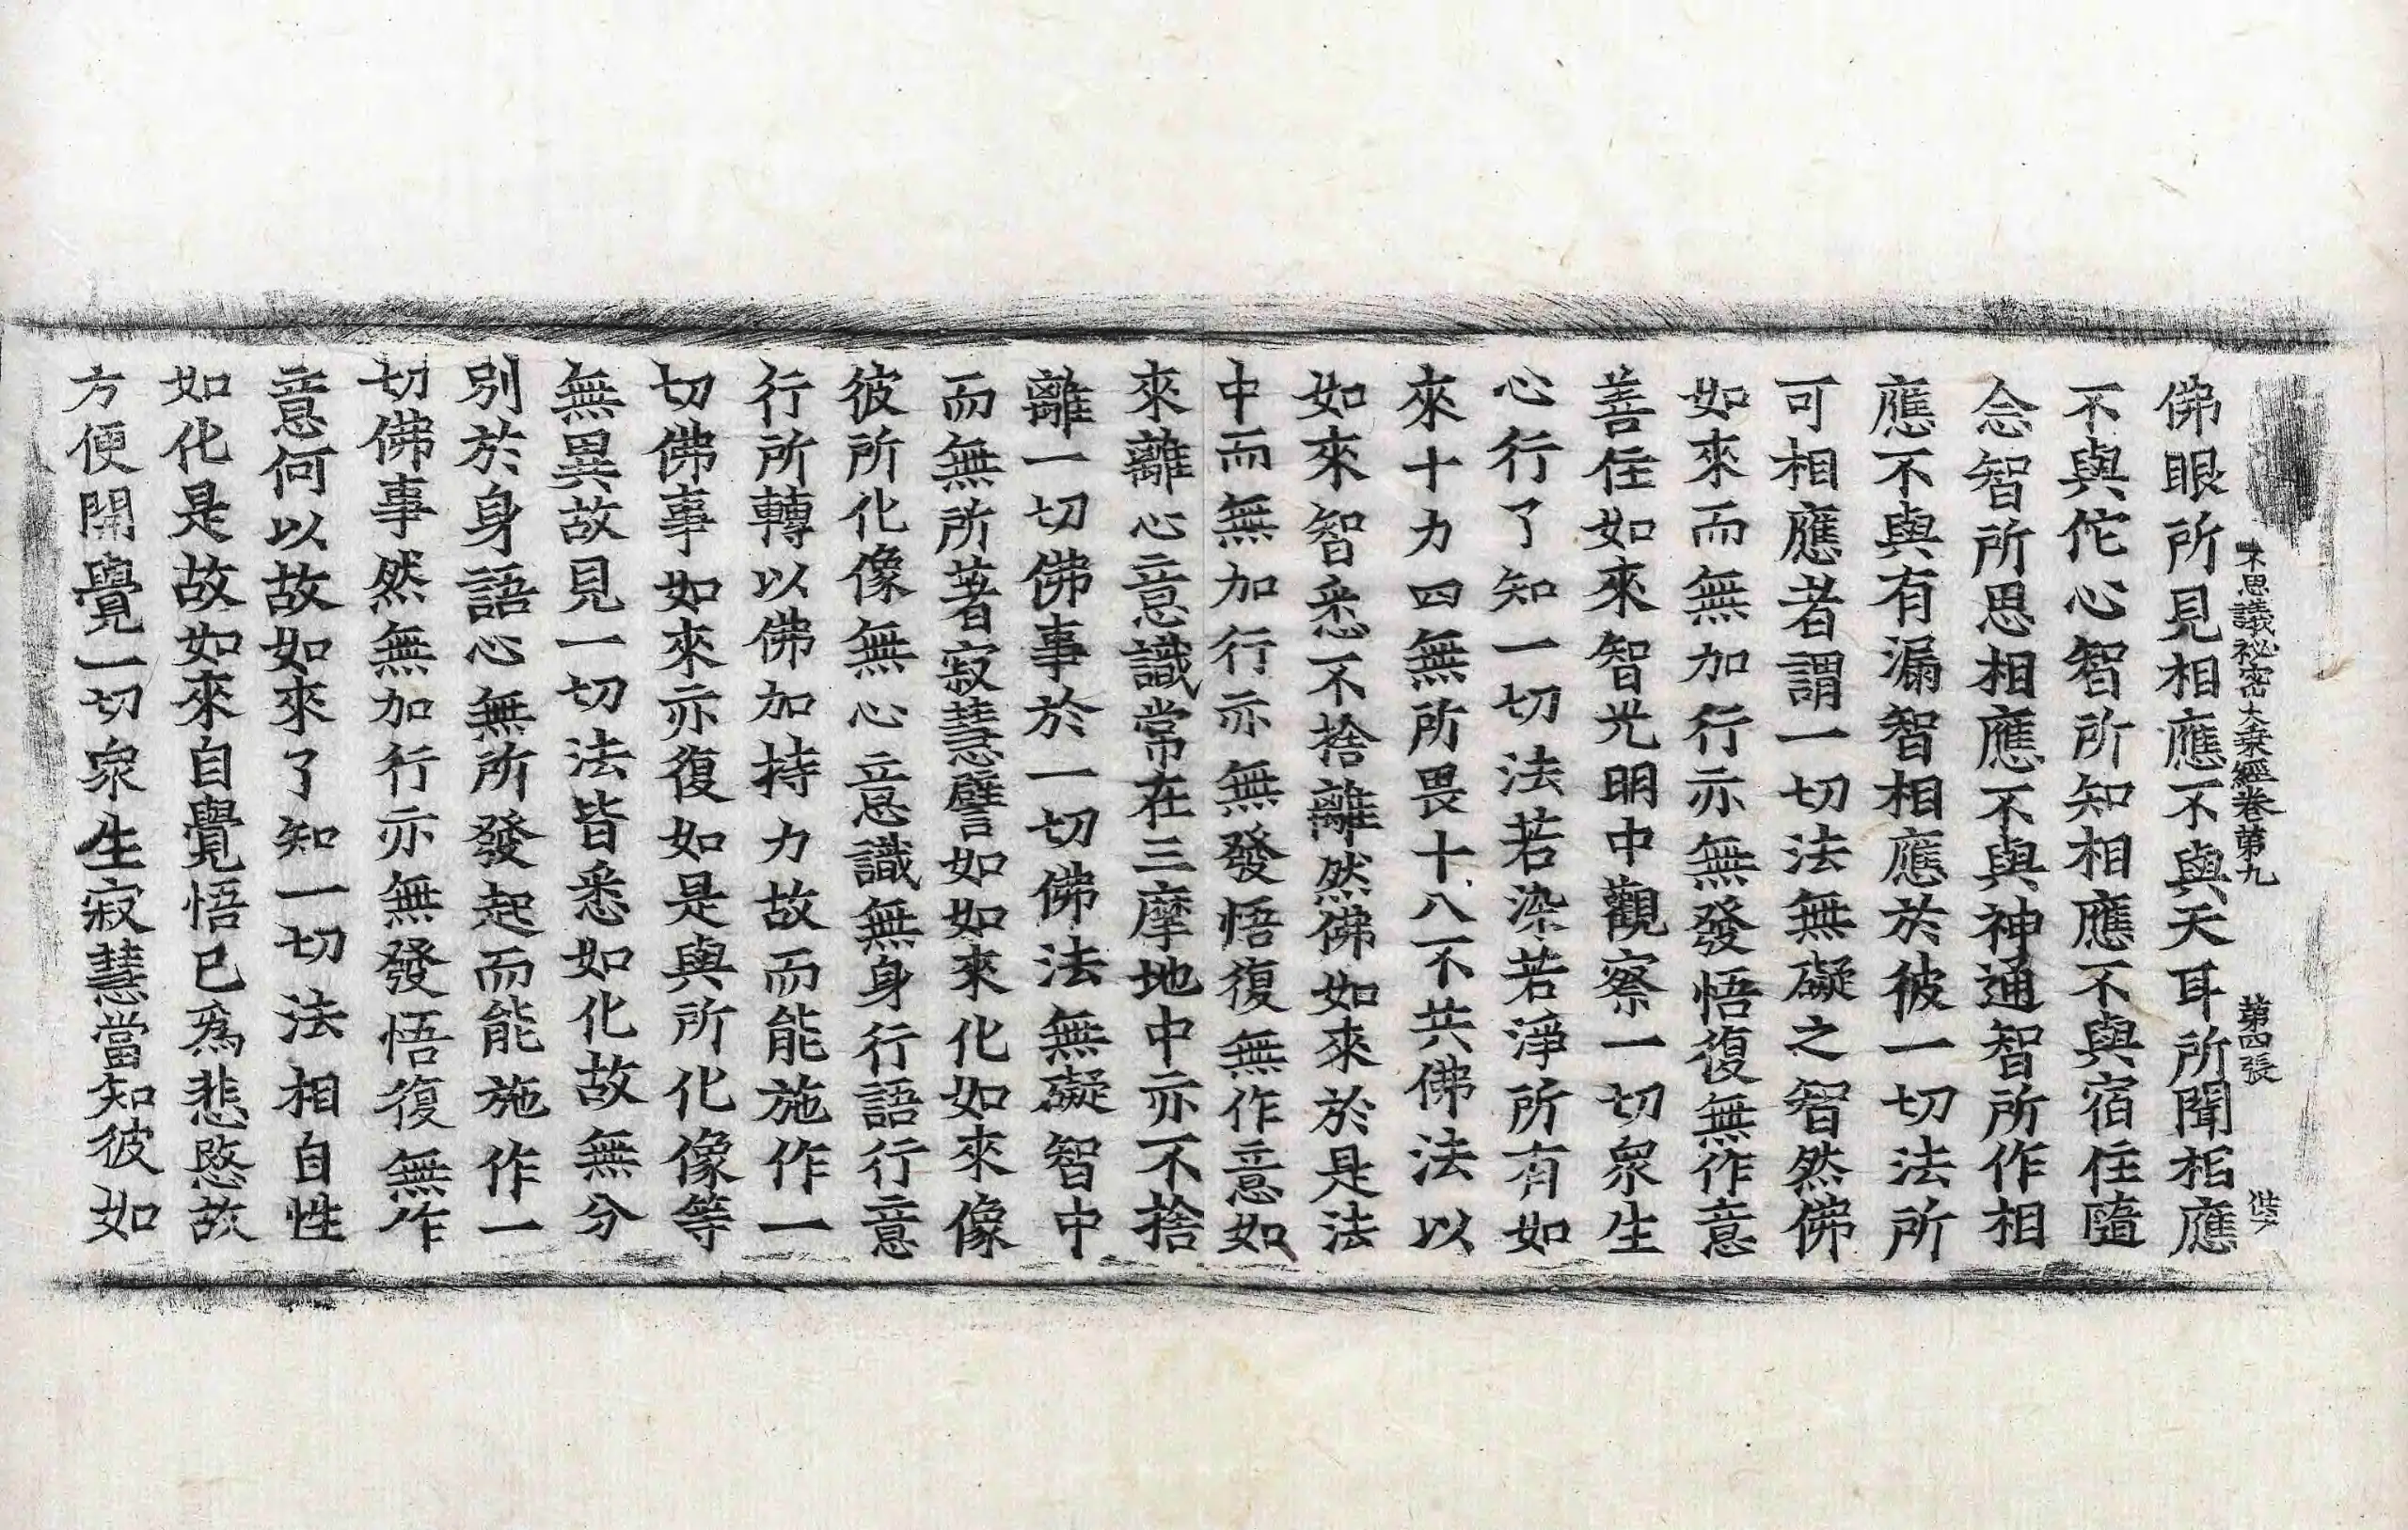 不思議祕密大乗經卷第九 第四張
佛眼所見相應不與天耳所聞相應
不與佗心智所知相應不與宿住隨
念智所思相應不與神通智所作相
應不與有漏智相應於彼一切法所
可相應者謂一切法無礙之智然佛
如來而無加行亦無發悟復無作意
善住如來智光明中觀察一切衆生
心行了知一切法若染若淨所有如
來十力四無所畏十八不共佛法以
如來智悉不捨離然佛如來於是法
中而無加行亦無發悟復無作意如
來離心意識常在三摩地中亦不捨
離一切佛事於一切佛法無礙智中
而無所著寂慧譬如如來化如來像
彼所化像無心意識無身行語行意
行所轉以佛加持力故而能施作一
切佛事如來亦復如是與所化像等
無異故見一切法皆悉如化故無分
別於身語心無所發起而能施作一
切佛事然無加行亦無發悟復無作
意何以故如來了知一切法相自性
如化是故如來自覺悟已爲悲愍故
方便開覺一切衆生寂慧當知彼如